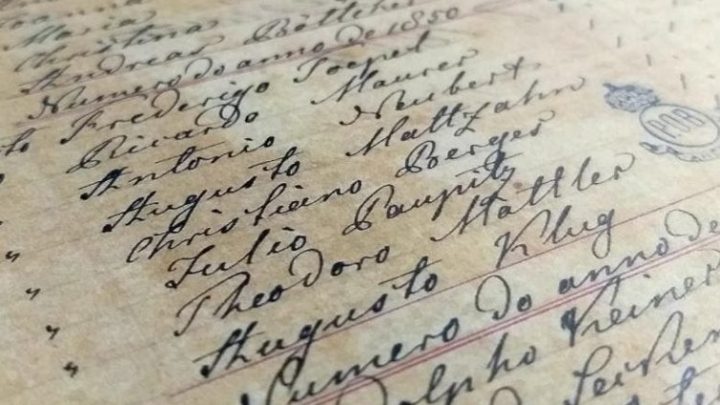 Maria
Christina
Andreas Böttcher
Numero do anno de 1850
Frederigo Toepel
Ricardo Maurer
Antonio Neubert
Augusto Mattzahn
" Christiano Berger
" Julio Paupitz
" Theodoro Mattler
" Augusto Klug
Numero do anno de
Adolpho Reiner